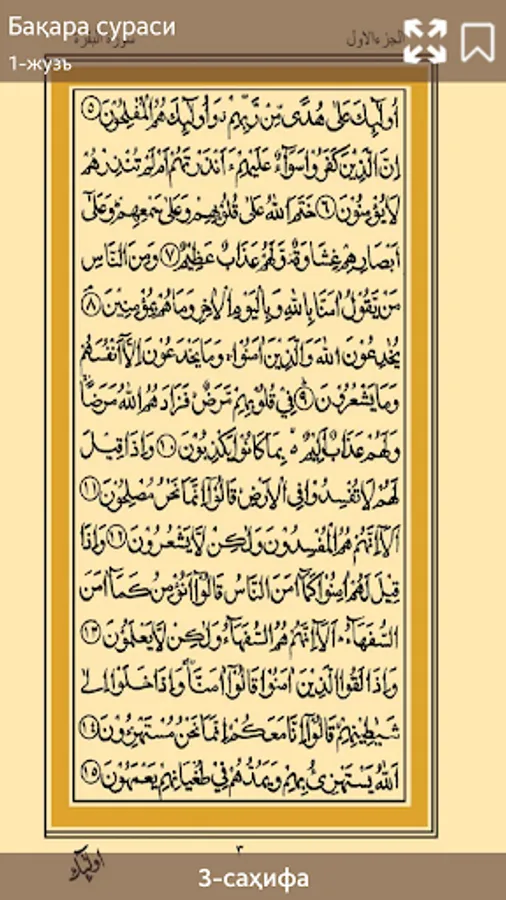 Бақара сураси
1-жузъ
سورة البقرة
الجزءالاول
اُولٰٓئِكَ عَلٰى هُدًى مِّنْ رَّبِّهِمْ وَاُولٰٓئِكَ هُمُ الْمُفْلِحُوْنَ ٥
اِنَّ الَّذِيْنَ كَفَرُوْا سَوَآءٌ عَلَيْهِمْ ءَاَنْذَرْتَهُمْ اَمْ لَمْ تُنْذِرْهُمْ
لَا يُؤْمِنُوْنَ ٦ خَتَمَ اللهُ عَلٰى قُلُوْبِهِمْ وَعَلٰى سَمْعِهِمْ وَعَلٰٓى
اَبْصَارِهِمْ غِشَاوَةٌ وَّلَهُمْ عَذَابٌ عَظِيْمٌ ٧ وَمِنَ النَّاسِ
مَنْ يَّقُوْلُ اٰمَنَّا بِاللهِ وَبِالْيَوْمِ الْاٰخِرِ وَمَا هُمْ بِمُؤْمِنِيْنَ ٨
يُخٰدِعُوْنَ اللهَ وَالَّذِيْنَ اٰمَنُوْا وَمَا يَخْدَعُوْنَ اِلَّآ اَنْفُسَهُمْ
وَمَا يَشْعُرُوْنَ ٩ فِيْ قُلُوْبِهِمْ مَّرَضٌ فَزَادَهُمُ اللهُ مَرَضًا
وَلَهُمْ عَذَابٌ اَلِيْمٌ بِمَا كَانُوْا يَكْذِبُوْنَ ١٠ وَاِذَا قِيْلَ
لَهُمْ لَا تُفْسِدُوْا فِي الْاَرْضِ قَالُوْٓا اِنَّمَا نَحْنُ مُصْلِحُوْنَ ١١
اَلَآ اِنَّهُمْ هُمُ الْمُفْسِدُوْنَ وَلٰكِنْ لَّا يَشْعُرُوْنَ ١٢ وَاِذَا
قِيْلَ لَهُمْ اٰمِنُوْا كَمَآ اٰمَنَ النَّاسُ قَالُوْٓا اَنُؤْمِنُ كَمَآ اٰمَنَ
السُّفَهَآءُ اَلَآ اِنَّهُمْ هُمُ السُّفَهَآءُ وَلٰكِنْ لَّا يَعْلَمُوْنَ ١٣
وَاِذَا لَقُوا الَّذِيْنَ اٰمَنُوْا قَالُوْٓا اٰمَنَّا وَاِذَا خَلَوْا اِلٰى
شَيٰطِيْنِهِمْ قَالُوْٓا اِنَّا مَعَكُمْ اِنَّمَا نَحْنُ مُسْتَهْزِءُوْنَ ١٤
اَللهُ يَسْتَهْزِئُ بِهِمْ وَيَمُدُّهُمْ فِيْ طُغْيَانِهِمْ يَعْمَهُوْنَ ١٥
٣
اولٓئك
3-саҳифа